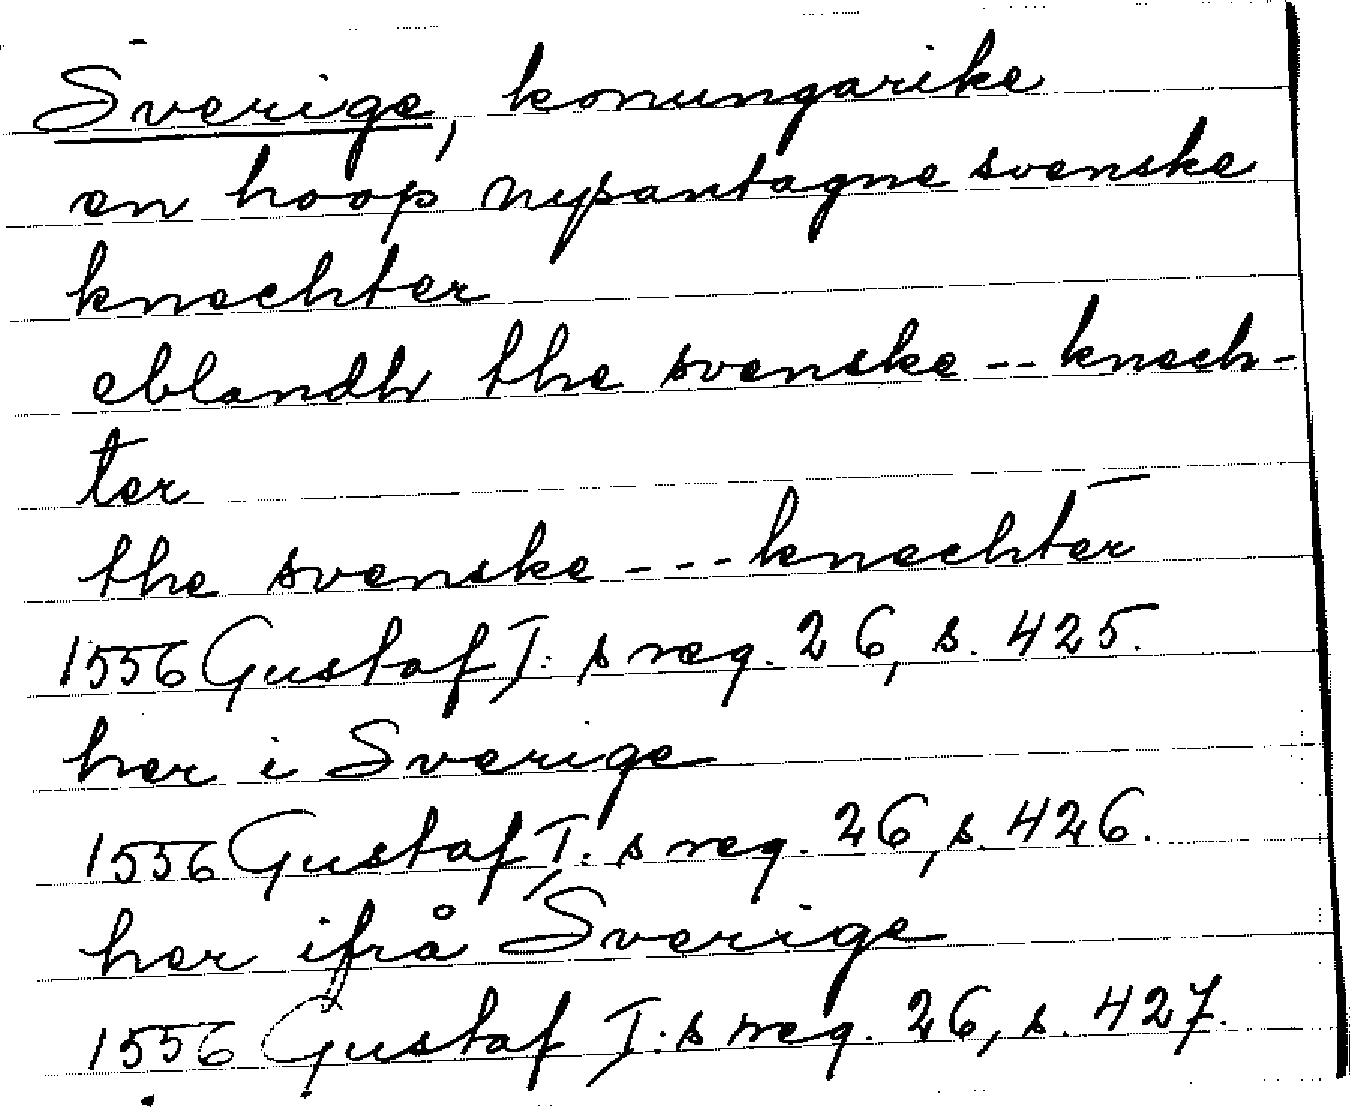 Sverige, konungarike
en hoop nypantagne svenske
knechter
eblandh the svenske -- knech-
ter
the svenske --- knechter
1556 Gustaf I: s reg. 26, s. 425.
her i Sverige
1556 Gustaf I: s reg. 26, s. 426.
her ifrå Sverige
1556 Gustaf I: s reg. 26, s. 427.